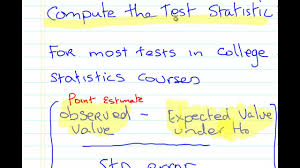 Compute the Test Statistic
For most tests in college
Statistics courses
Point Estimate
observed value - Expected Value under Ho
Std error